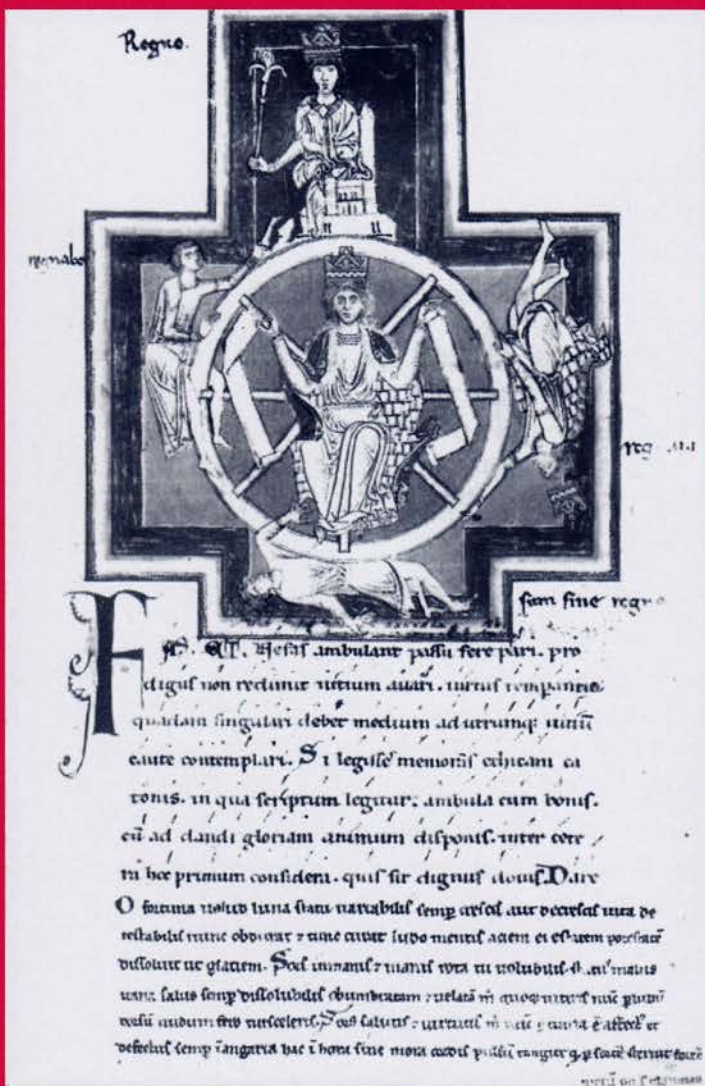 Regno.
regnabo
sum sine regno
FAS. ET. Nefas ambulant passu fere pari. pro
digus non redimit uitium auari. uirtus temperantia
quadam singulari debet medium ad utrumq; uitiū
caute contemplari. Si legisse memoras ethicam ca
tonis. in qua scriptum legitur. ambula cum bonis.
cū ad dandi gloriam animum disponis. inter cete
ra hoc primum considera. quis sit dignus donis. Dare
O fortuna uelud luna statu uariabilis semp crescis aut decrescis uita de
testabilis nunc obdurat & tunc curat ludo mentis aciem potestatē
dissoluit ut glaciem. Sors immanis & inanis rota tu uolubilis status malus
uana salus semp dissolubilis obumbratam & uelatam m quoq niteris nūc p ludū
nudum fero tui sceleris. Sors salutis & uirtutis m nūc ē et
defectus semp ī angaria hac ī hora sine mora cordis pulsū tangite q p sortē sternit fortē